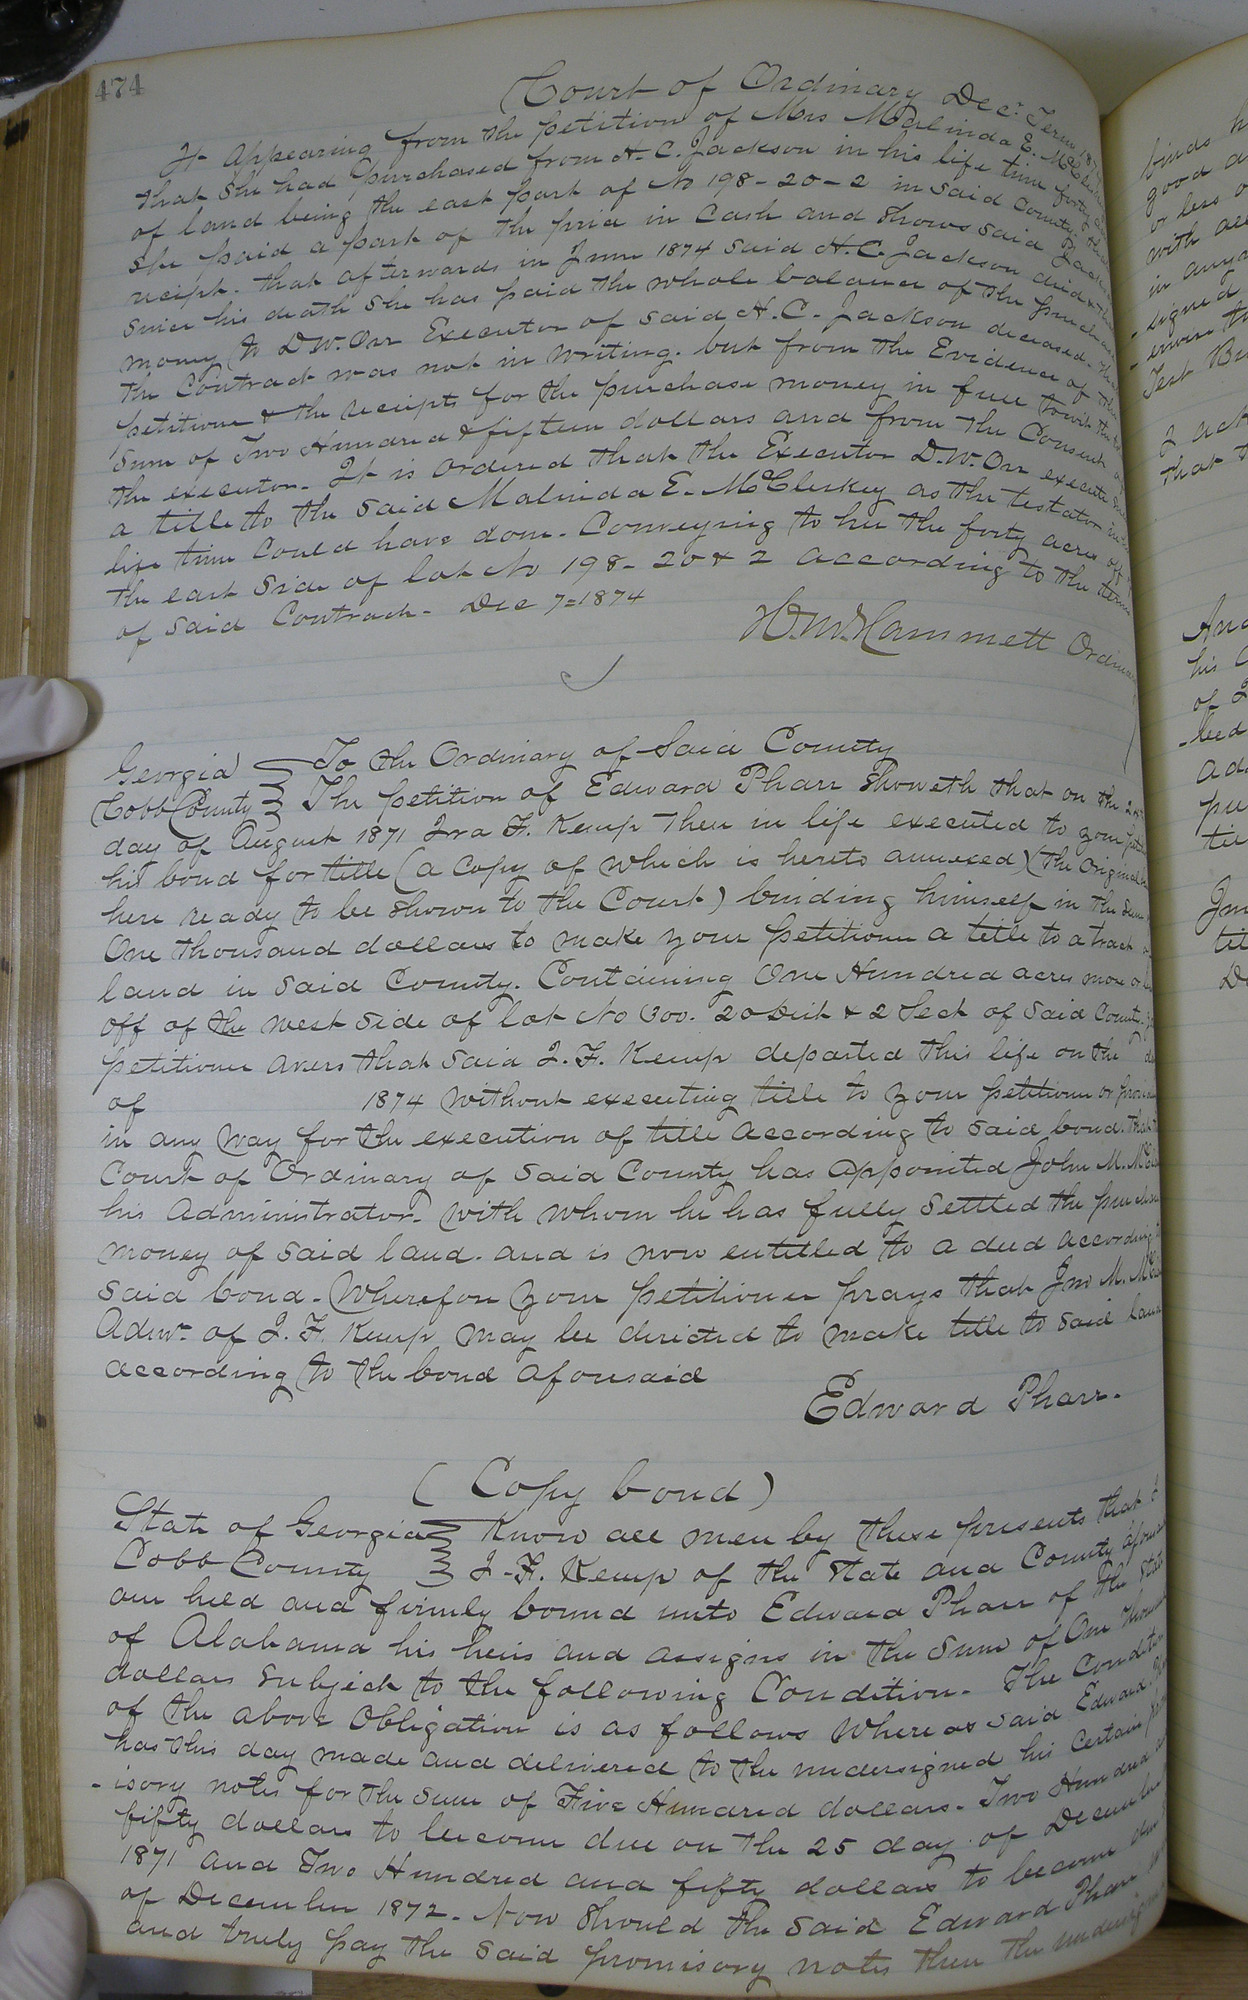 474
Court of Ordinary Decr. Term 187
It appearing from the petition of Mrs Malinda E. McCles
that she had purchased from H. C. Jackson in his life time forty
of land being the east part of No 198-20-2 in said County that
she paid a part of the price in Cash and shows said Jackson
reciept. that afterwards in June 1874 said H. C. Jackson died &
since his death she has paid the whole balance of the purchase
money to D.W. Orr Executor of said H. C. Jackson deceased. that
the Contract was not in writing. but from the Evidence of the
petitioner & the reciepts for the purchase money in full towit the
sum of Two Hundred & fifteen dollars and from the Consent of
the executor. It is ordered that the Executor D.W. Orr execute
a title to the said Malinda E. McCleskey as the testator in
life time could have done. Conveying to her the forty acres off
the east side of lot No 198-20 & 2 according to the terms
of said Contract - Dec 7=1874
W.M. Hammett Ordinary
Georgia } To the Ordinary of said County
Cobb County } The petition of Edward Pharr showeth that on the
day of August 1871 Ira F. Kemp then in life executed to your
his bond for title (a copy of which is hereto annexed) (the original
here ready to be shown to the Court) binding himself in the sum
One thousand dollars to make your petitioner a title to a tract
land in said County. Containing One Hundred acres more or less
off of the west side of lot No 300. 20 Dist & 2 Sect of said County.
petitioner avers that said I. F. Kemp departed this life on the
of 1874 without executing title to your petitioner or
in any way for the execution of title according to said bond. that the
Court of Ordinary of said County has appointed John M.
his Administrator. with whom he has fully settled the purchase
money of said land. and is now entitled to a deed according to
said bond. Wherefore your petitioner prays that Jno M.
Admr. of I. F. Kemp may be directed to make title to said land
according to the bond aforesaid
Edward Pharr.
(Copy bond)
State of Georgia } Know all men by these presents that I
Cobb County } I. F. Kemp of the State and County aforesaid
am held and firmly bound unto Edward Pharr of the State
of Alabama his heirs and assigns in the sum of One thousand
dollars subject to the following Condition. The Condition
of the above obligation is as follows Whereas said Edward
has this day made and delivered to the undersigned his certain
-isory notes for the sum of Five Hundred dollars. Two Hundred
fifty dollars to become due on the 25 day of December
1871 and Two Hundred and fifty dollars to become due
of December 1872. Now should the said Edward Pharr
and truly pay the said promisory notes then the undersigned
binds
good
or less
with all
in any
signed
Test
I
that
And
his
of